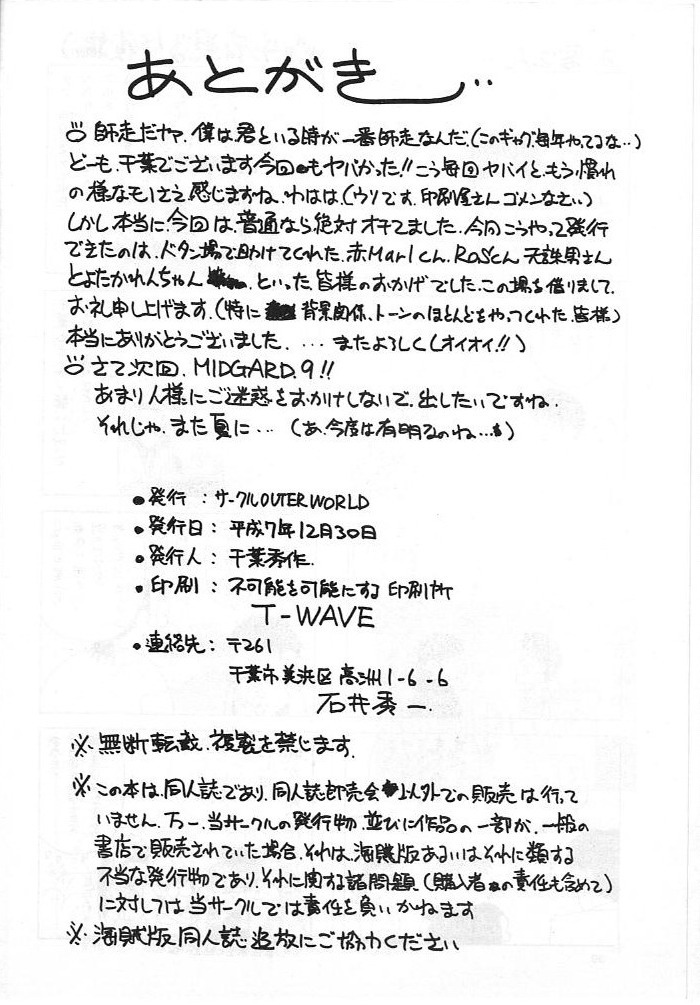 あとがき..
師走だヤァ、僕は君といる時が一番師走なんだ。(このギャグ毎年やってるな..)
どーも、千葉でございます今回もヤバかった!!こう毎回ヤバイと、もう慣れ
の様なモノさえ感じますね、わはは、(ウソです、印刷屋さんゴメンなさい)
しかし本当に、今回は、普通なら絶対オチてました、今回こうやって発行
できたのは、ドタン場で助けてくれた、赤Marlくん、RaSくん、天誅男さん
とよたかれんちゃん、といった皆様のおかげでした、この場を借りまして、
お礼申し上げます、(特に背景関係、トーンのほとんどをやってくれた、皆様)
本当にありがとうございました、…またよろしく(オイオイ!!)
さて次回、MIDGARD.9!!
あまり人様にご迷惑をおかけしないで、出したいですね、
それじゃ、また夏に…(あ、今度は有明なのね…)
●発行:サークルOUTERWORLD
●発行日:平成7年12月30日
●発行人:千葉秀作.
●印刷:不可能を可能にする印刷所
T-WAVE
●連絡先:〒261
千葉市美浜区高洲1-6-6
石井秀一.
※無断転載、複製を禁じます.
※この本は、同人誌であり、同人誌即売会以外での販売は行って
いません、万一、当サークルの発行物、並びに作品の一部が、一般の
書店で販売されていた場合、それは、海賊版あるいはそれに類する
不当な発行物であり、それに関する諸問題(購入者の責任も含めて)
に対しては当サークルでは責任を負いかねます
※海賊版同人誌追放にご協力ください